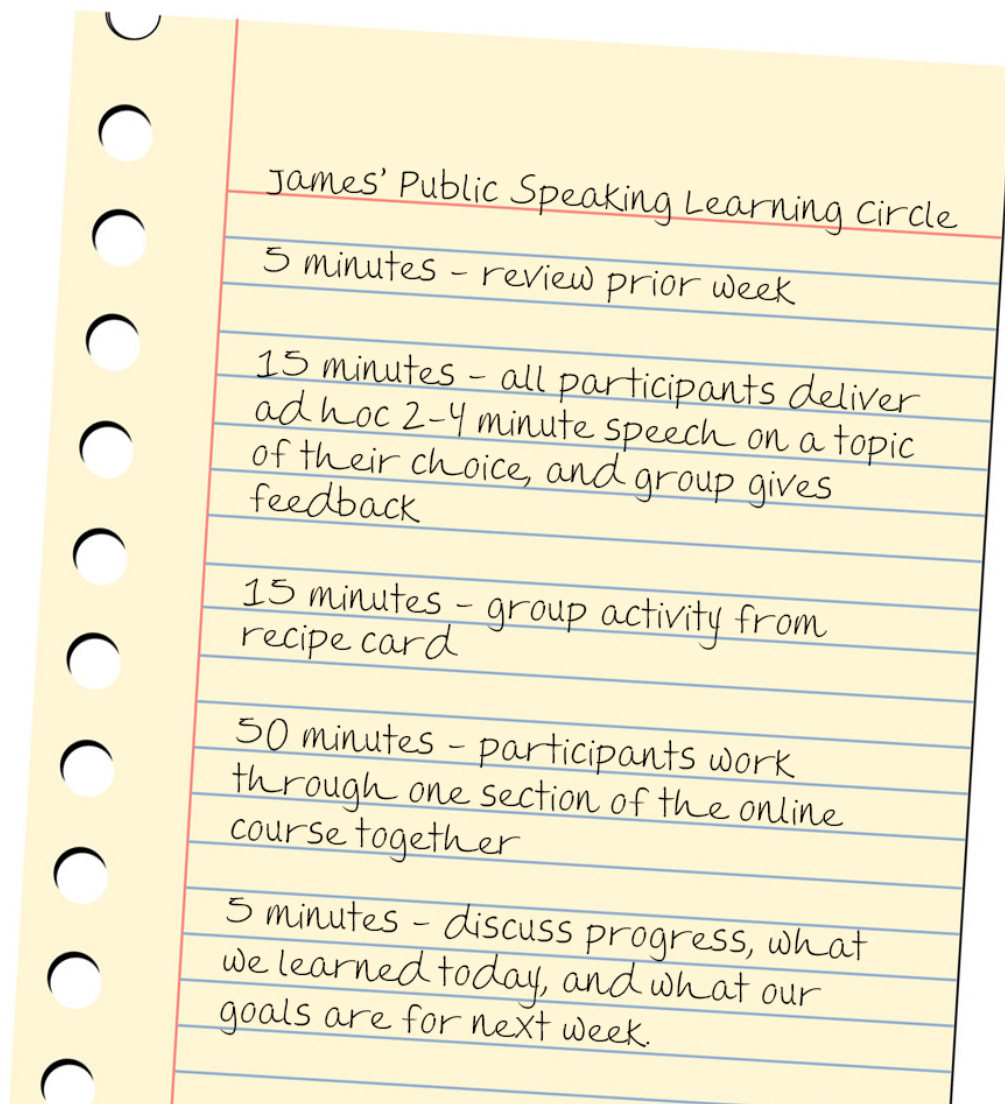 James' Public Speaking Learning Circle
5 minutes - review prior week
15 minutes - all participants deliver
ad hoc 2-4 minute speech on a topic
of their choice, and group gives
feedback
15 minutes - group activity from
recipe card
50 minutes - participants work
through one section of the online
course together
5 minutes - discuss progress, what
we learned today, and what our
goals are for next week.